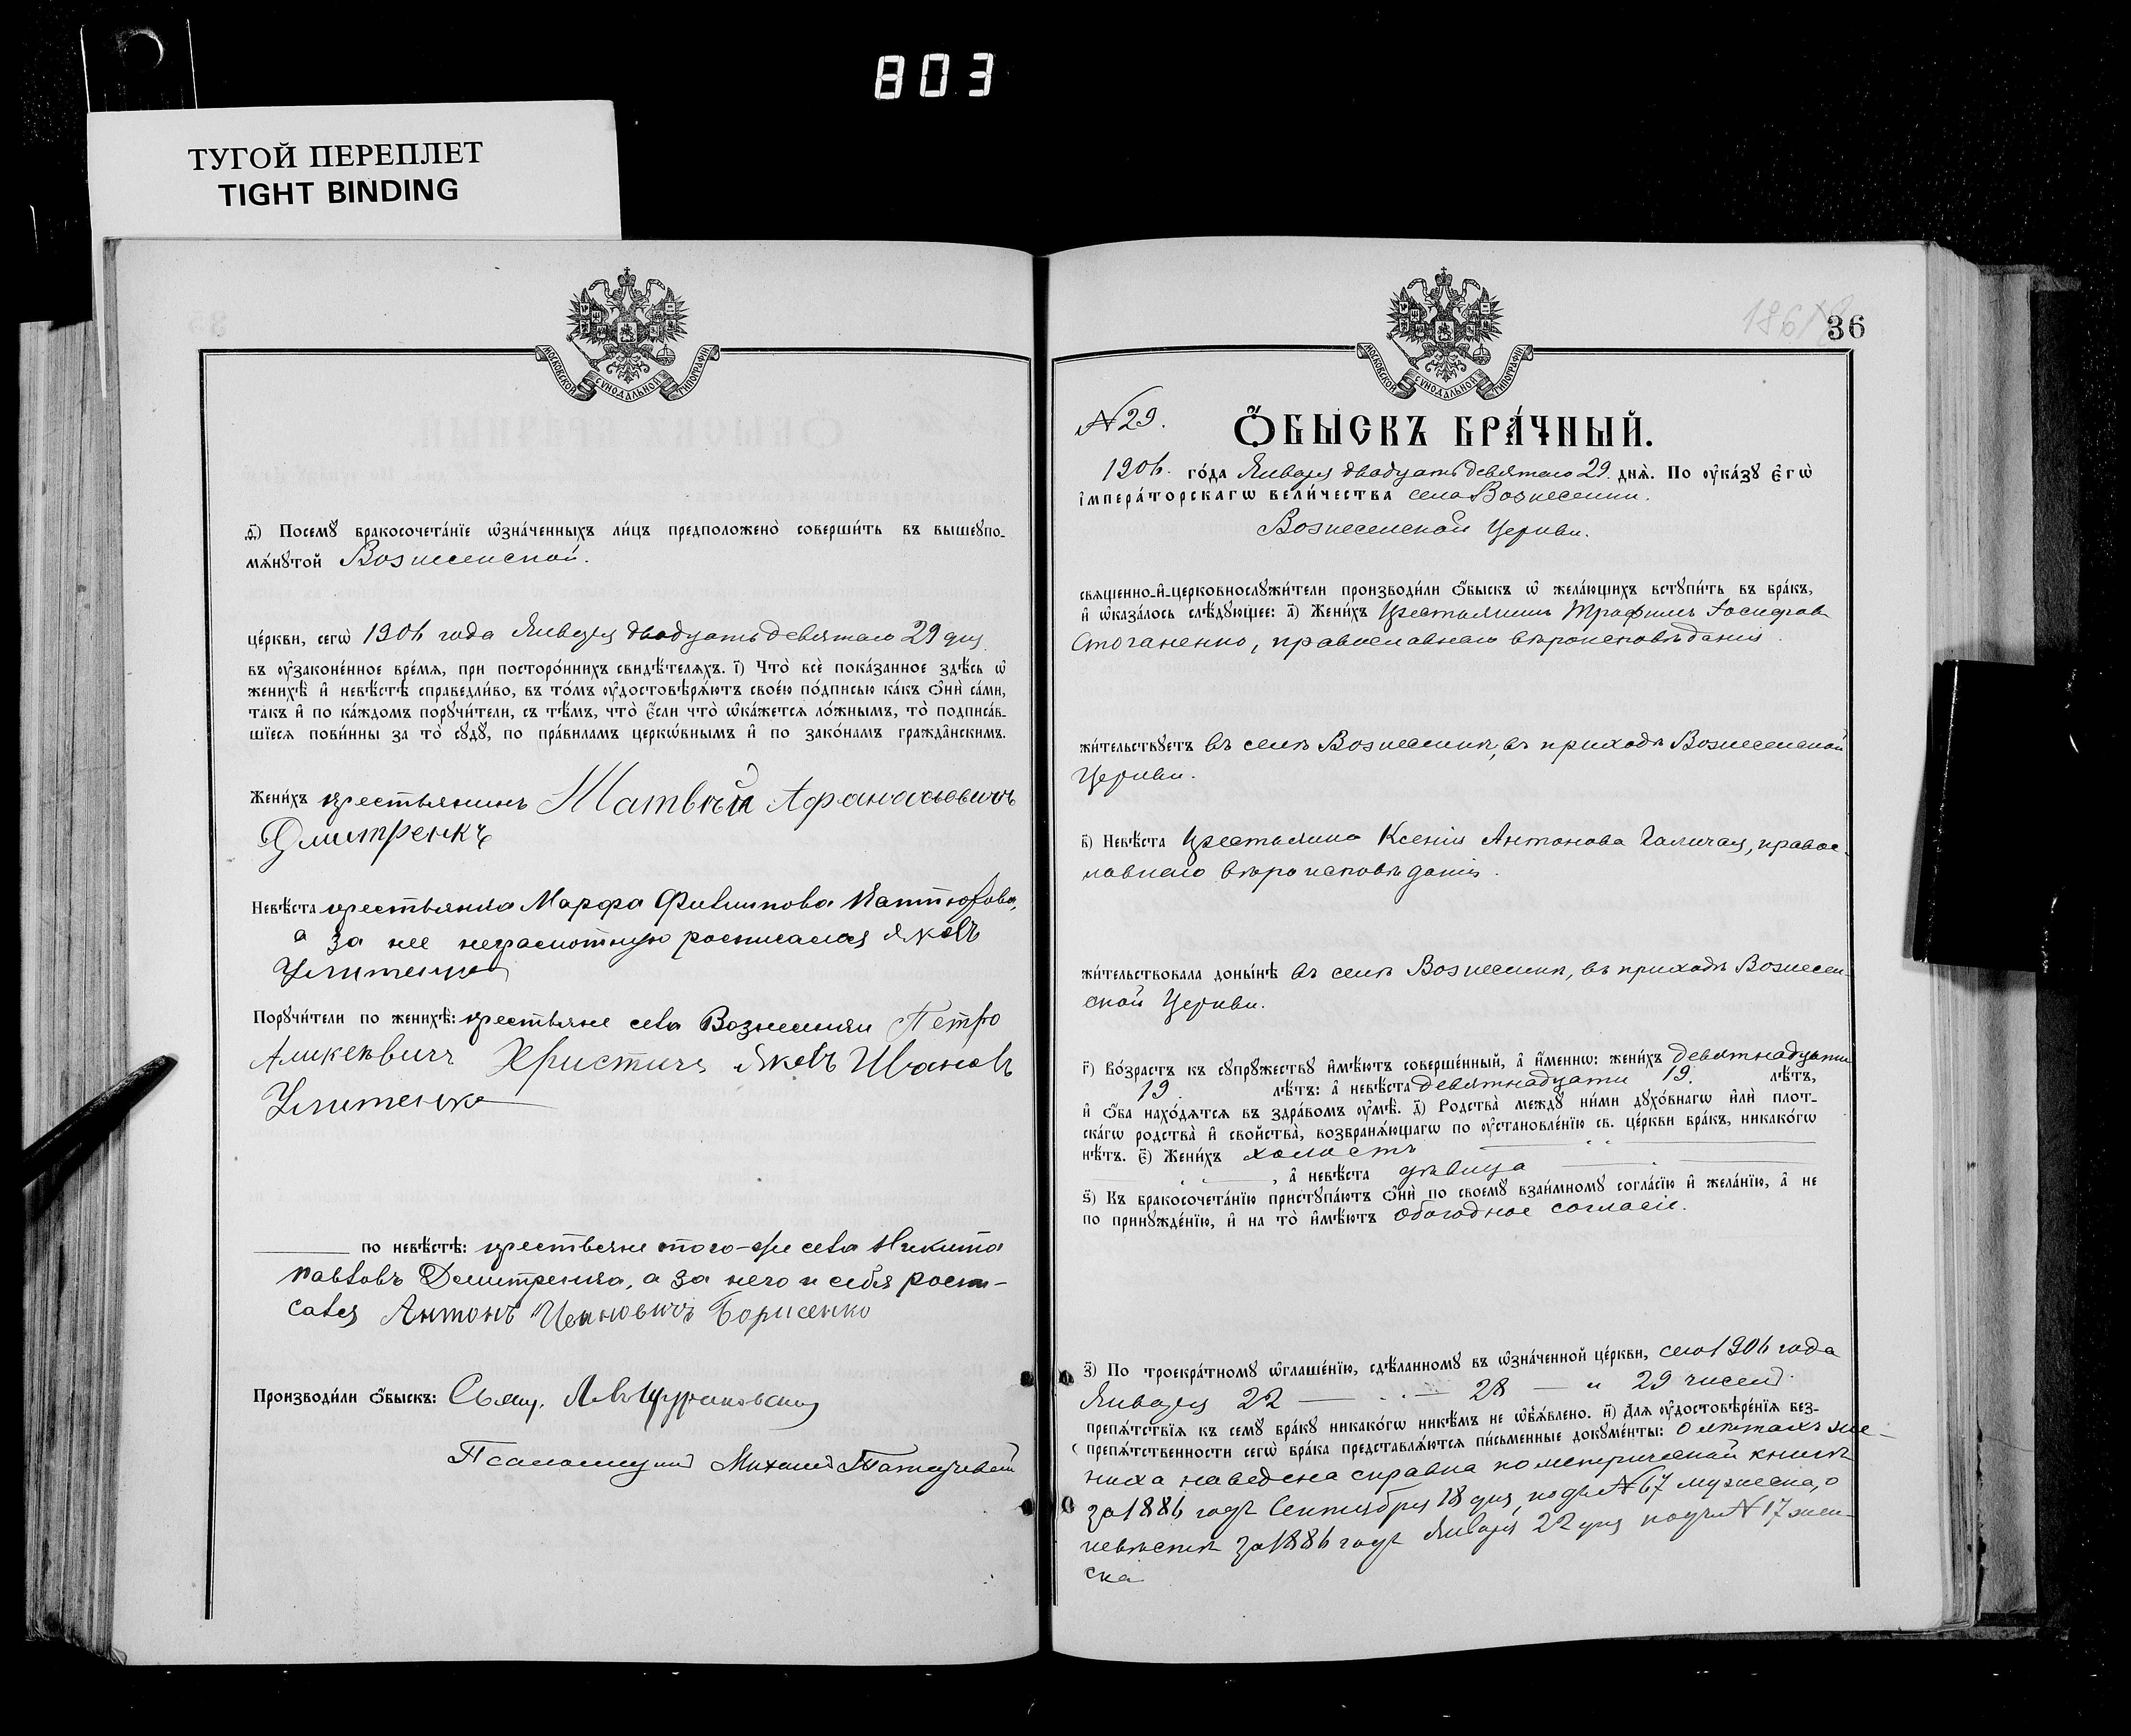 803
ТУГОЙ ПЕРЕПЛЕТ
TIGHT BINDING
МОСКОВСКОЙ СУНОДАЛЬНОЙ ТИПОГРАФІИ
д҃) Посемꙋ бракосочета́нїе ѡ҆зна́ченныхъ ли́цъ предположено̀ соверши́ть въ вышеꙋпо-
мѧ́нꙋтой Вознесенской.
це́ркви, сегѡ̀ 1906 года Января двадцать девятаго 29 дня
въ ᲂу҆законе́нное вре́мѧ, при посторо́ннихъ свидѣ́телѧхъ. і҃) Что̀ всѐ пока́занное здѣ́сь ѡ҆
женихѣ̀ и҆ невѣ́стѣ справедли́во, въ то́мъ ᲂу҆достовѣрѧ́ютъ свое́ю по́дписью ка́къ ѻ҆нѝ са́ми,
та́къ и҆ по ка́ждомъ порꙋчи́тели, съ тѣ́мъ, что̀ є҆́сли что̀ ѡ҆ка́жетсѧ ло́жнымъ, то̀ подписа́в-
шїесѧ пови́нны за то̀ сꙋдꙋ̀, по пра́виламъ церкѡ́внымъ и҆ по зако́намъ гражда̂нскимъ.
Жени́хъ крестьянинъ Матвѣй Афанасьевичъ
Дмитренкъ
Невѣ́ста крестьянка Марфа Филипова
а за нее неграмотную росписался Яковъ
Поручи́тели по женихѣ̀: крестьяне села Вознесенки Петро
Христичъ Яковъ Ивановъ
по невѣ́стѣ: крестьяне того-же села Никита
Павловъ Демитренка, а за него и себя роспи-
сался Антонъ Ивановичъ Борисенко
Производи́ли ѻ҆́быскъ: Свящ.
Псаломщикъ Михаилъ
МОСКОВСКОЙ СУНОДАЛЬНОЙ ТИПОГРАФІИ
36
N 29.
Ѻ҆́БЫСКЪ БРА́ЧНЫЙ.
1906. го́да Января двадцать девятаго 29. днѧ̀. По ᲂу҆ка́зꙋ є҆гѡ̀
і҆мпера́торскагѡ вели́чества села Вознесенки.
Вознесенской Церкви.
свѧще́нно-и҆-церковнослꙋжи́тели производи́ли ѻ҆́быскъ ѡ҆ жела́ющихъ встꙋпи́ть въ бра́къ,
и҆ ѡ҆каза́лось слѣ́дꙋющее: а҃) Жени́хъ Крестьянинъ Трофимъ Іосифов
православнаго вѣроисповѣданія.
жи́тельствꙋетъ въ селѣ Вознесенкѣ, въ приходѣ Вознесенской
Церкви.
в҃) Невѣ́ста Крестьянка Ксенія Антонова Галичая, правос-
лавнаго вѣроисповѣданія.
жи́тельствовала доны́нѣ въ селѣ Вознесенкѣ, въ приходѣ Вознесен-
ской Церкви.
г҃) Во́зрастъ къ сꙋпрꙋ́жествꙋ и҆мѣ́ютъ соверше́нный, а҆ и҆́меннѡ: жени́хъ девятнадцати
19. лѣ́тъ: а҆ невѣ́ста девятнадцати 19. лѣ́тъ,
и҆ ѻ҆́ба нахо́дѧтсѧ въ здра́вомъ ᲂу҆мѣ̀. д҃) Родства̀ междꙋ̀ ни́ми дꙋхо́внагѡ и҆лѝ плот-
ска́гѡ родства̀ и҆ сво́йства̀, возбранѧ́ющагѡ по ᲂу҆становле́нїю св. це́ркви бра́къ, никако́гѡ
нѣ́тъ. є҃) Жени́хъ холостъ
, а҆ невѣ́ста дѣвица
ѕ҃) Къ бракосочета́нїю пристꙋпа́ютъ ѻ҆нѝ по своемꙋ̀ взаи́мномꙋ согла́сїю и҆ жела́нїю, а҆ не
по принꙋжде́нїю, и҆ на то̀ и҆мѣ́ютъ обогодное согласіе.
з҃) По троекра́тномꙋ ѡ҆глаше́нїю, сдѣ́ланномꙋ въ ѡ҆зна́ченной це́ркви, сего 1906 года
Января 22 — 28 — и 29 чиселъ.
препѧ́тствїѧ къ семꙋ̀ бра́кꙋ никако́гѡ никѣ́мъ не ѡ҆б̾ѧ́влено. и҃) Длѧ ᲂу҆достовѣре́нїѧ без-
препѧ́тственности сегѡ̀ бра́ка представлѧ́ютсѧ пи́сьменные докꙋме́нты: О лѣтахъ же-
ниха наведена справка по метрической книгѣ
за 1886 годъ Сентября 18 дня, подъ N 67 мужеска, о
невѣстѣ за 1886 годъ Января 22 дня подъ N 17 жен-
ска